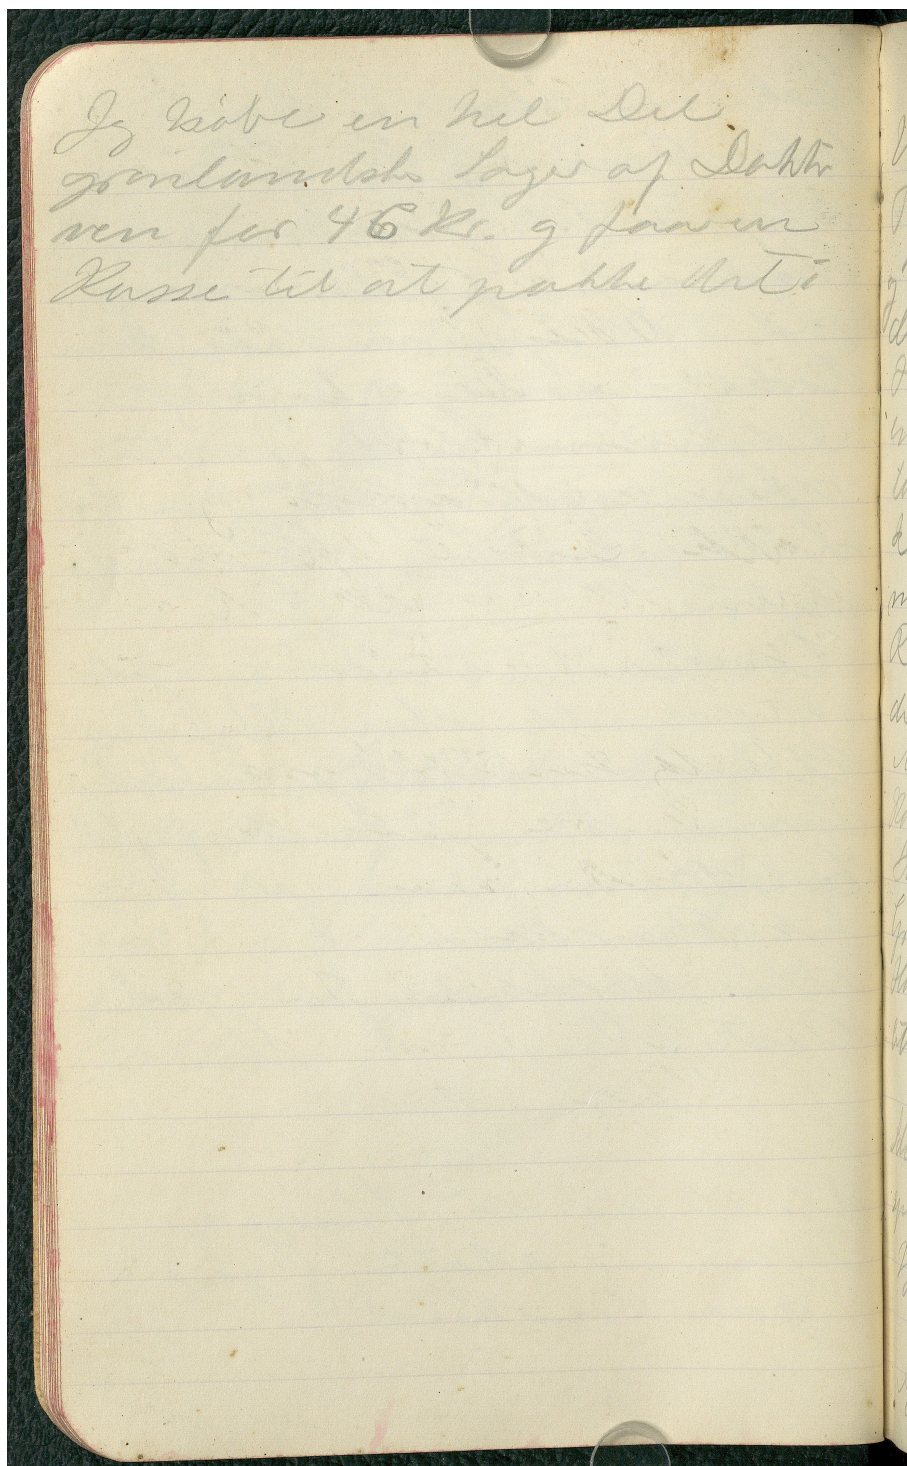 Jeg købe en hel Del
grønlandske Sager af Doktor
ven for 46 Kr. og faar en
Kasse til at pakke det i